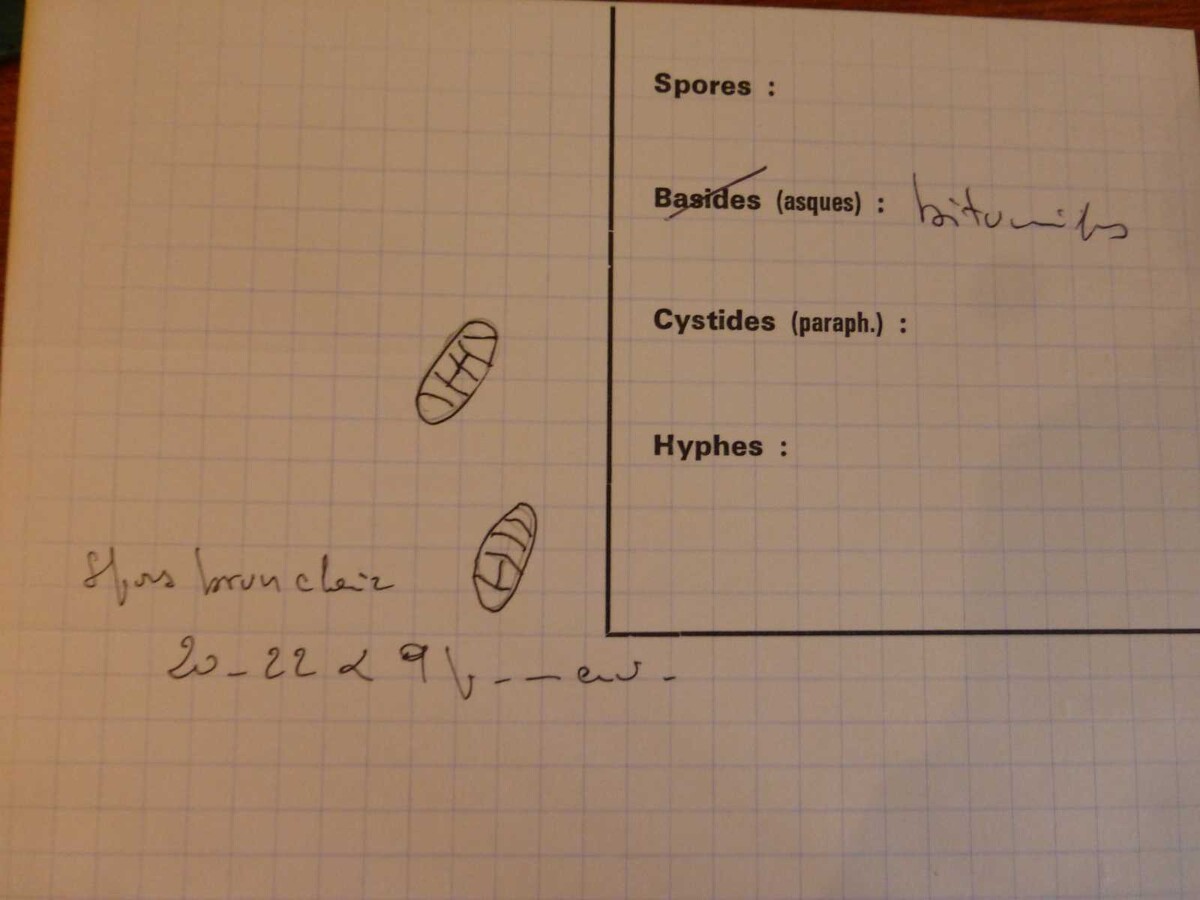 Spores :
Basides (asques) : bituniqués
Cystides (paraph.) :
Hyphes :
Spores brun clair
20-22 x 9 µ - - env -